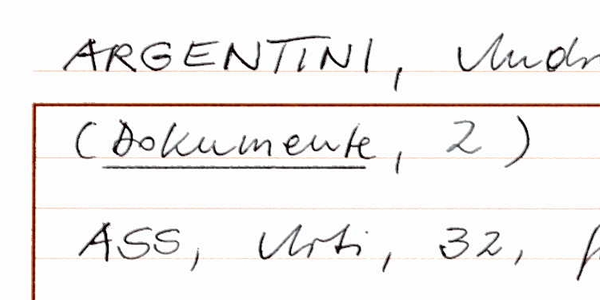 ARGENTINI,
(Dokumente, 2)
ASS, 32,